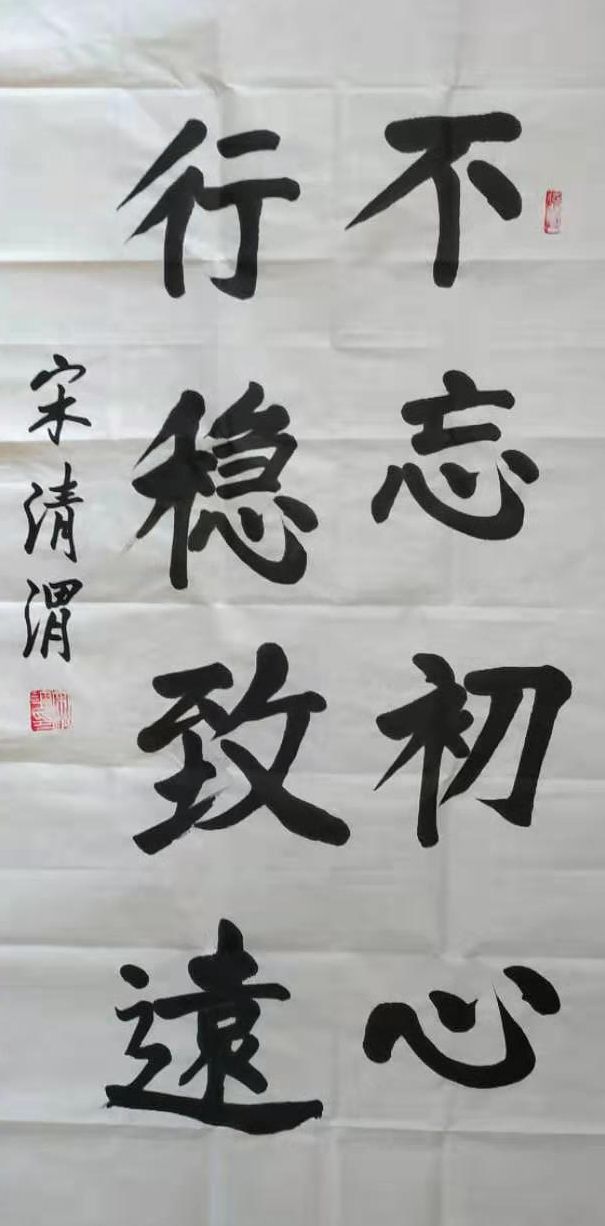 不忘初心
行稳致遠
宋清渭